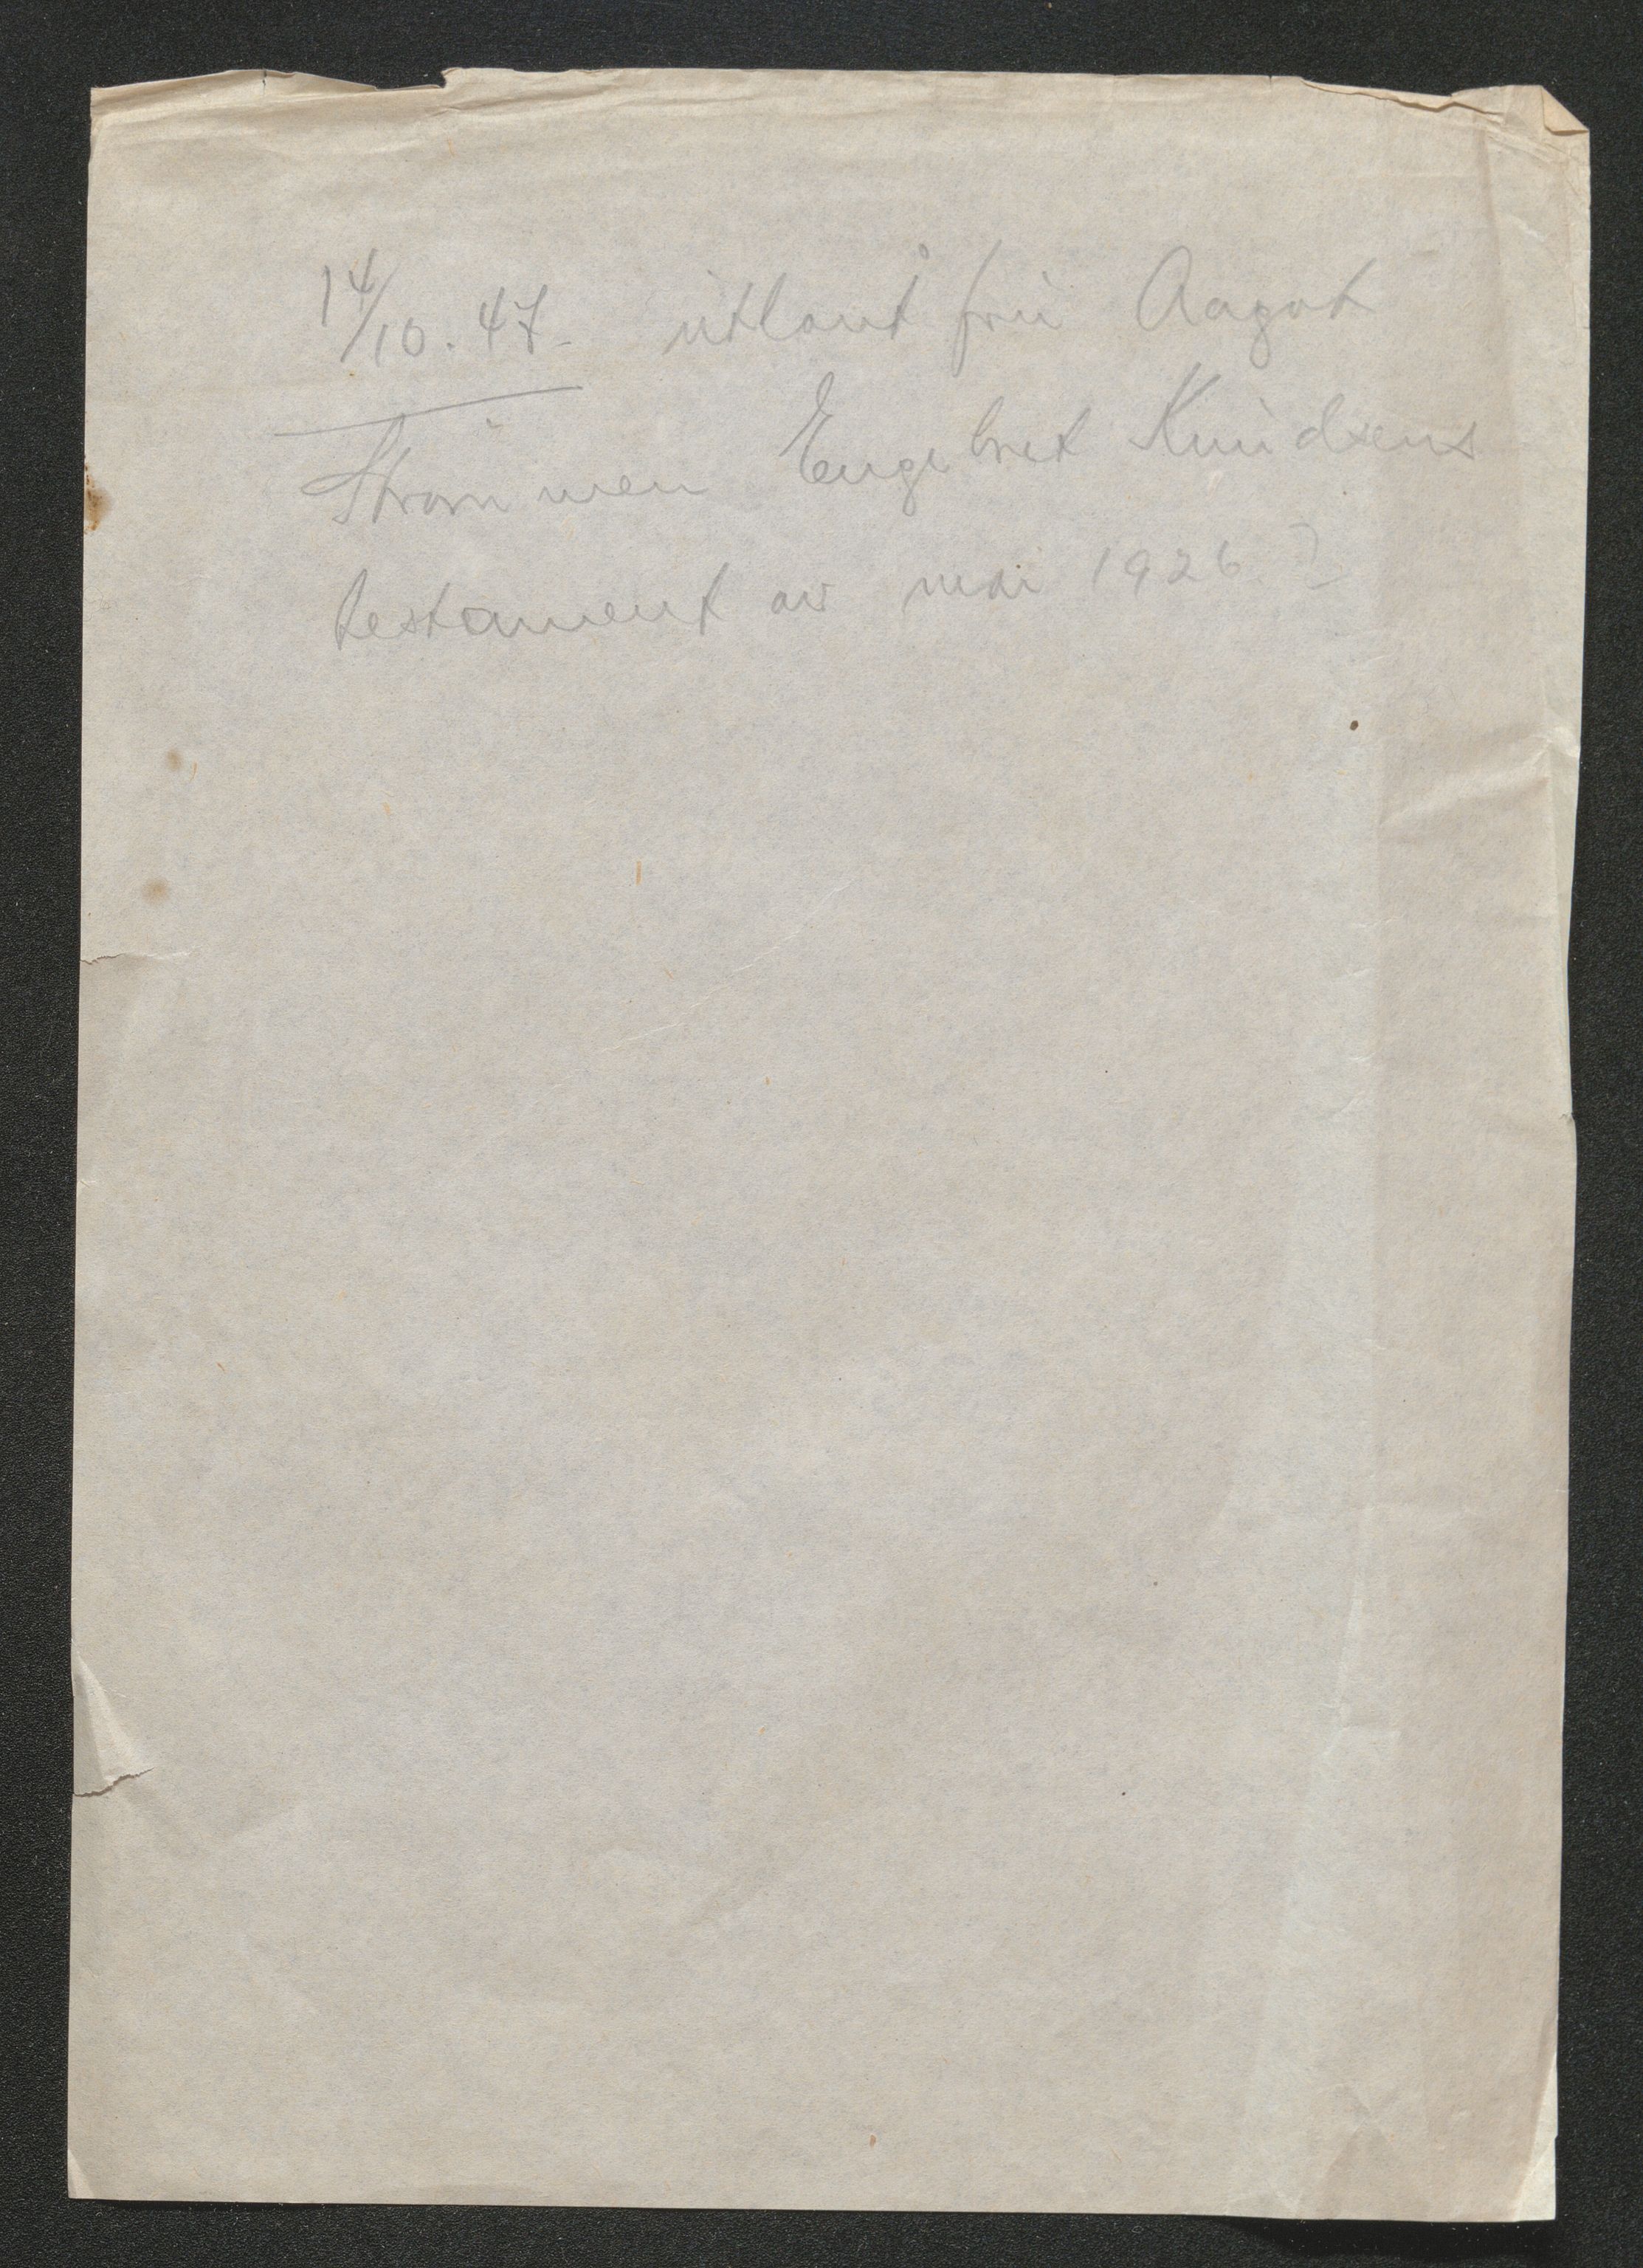 14/10. 47. utlånt fru Aagot
Strømmen Engebret Knudsens
testament av mai 1926.